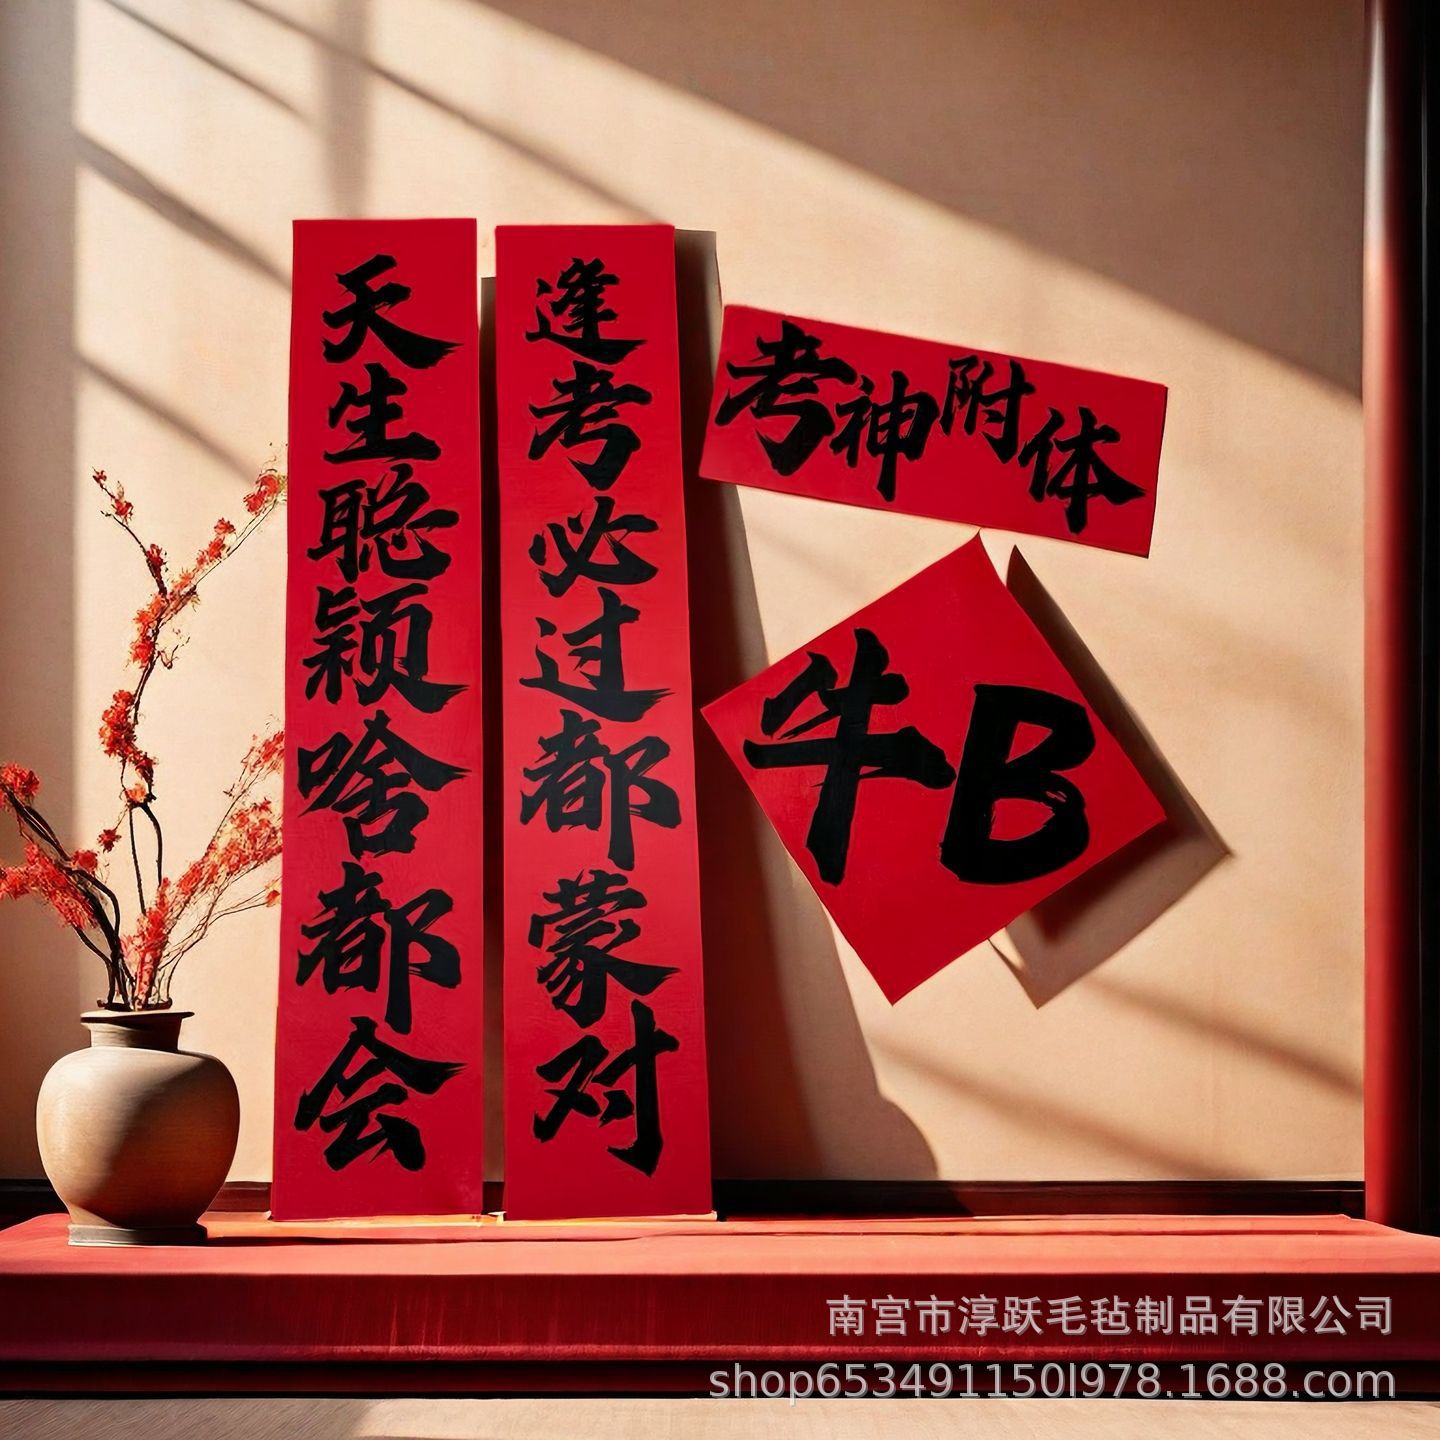 天生聪颖啥都会
逢考必过都蒙对
考神附体
牛B
南宫市淳跃毛毡制品有限公司
shop653491150l978.1688.com